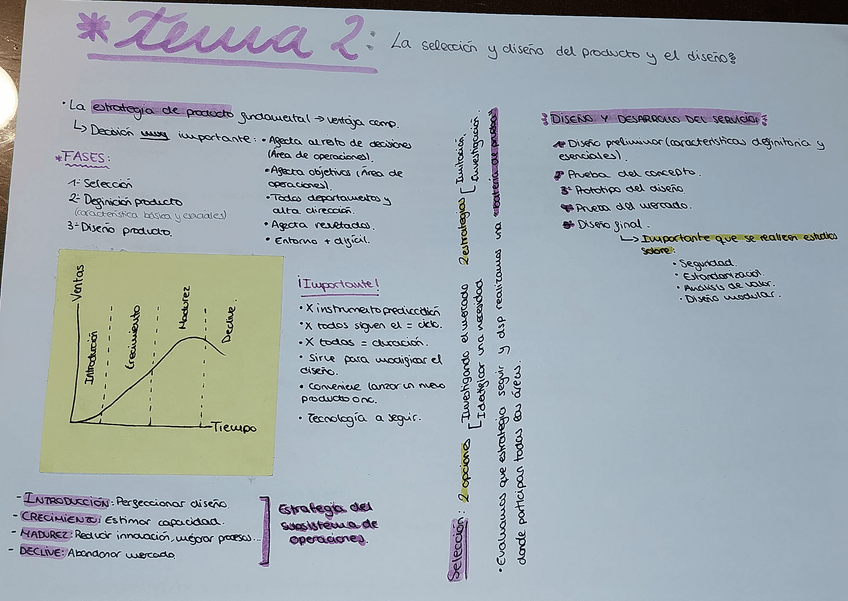 * Tema 2: La selección y diseño del producto y el diseño:
• La estrategia de producto fundamental → ventaja comp.
↳ Decisión muy importante:
• Afecta al resto de decisiones
(Área de operaciones).
• Afecta objetivos (Área de
operaciones).
• Todos departamentos y
alta dirección.
• Afecta resultados.
• Entorno + difícil.
* FASES:
1- Selección
2- Definición producto
(característica básica y esenciales)
3- Diseño producto.
Ventas
Introducción
Crecimiento
Madurez
Declive.
Tiempo
¡Importante!
• X instrumento predicción
• X todos siguen el = ciclo.
• X todos = duración.
• Sirve para modificar el
diseño.
• Conveniene lanzar un nuevo
producto o no.
• Tecnología a seguir.
- INTRODUCCIÓN: Perfeccionar diseño.
- CRECIMIENTO: Estimar capacidad.
- MADUREZ: Reducir innovación, mejorar procesos...
- DECLIVE: Abandonar mercado
Estrategia del
subsistema de
operaciones.
Selección: 2 opciones
Investigando el mercado
Identificar una necesidad
2 estrategias
Imitación.
Investigación.
• Evaluamos que estrategia seguir y dsp realizamos una batería de pruebas
donde participan todas las áreas.
DISEÑO Y DESARROLLO DEL SERVICIO:
1- Diseño preliminar (características definitoria y
esenciales).
2- Prueba del concepto.
3- Prototipo del diseño
4- Prueba del mercado.
5- Diseño final.
↳ Importante que se realicen estudios
sobre:
• Seguridad.
• Estandarización.
• Análisis de valor.
• Diseño modular.